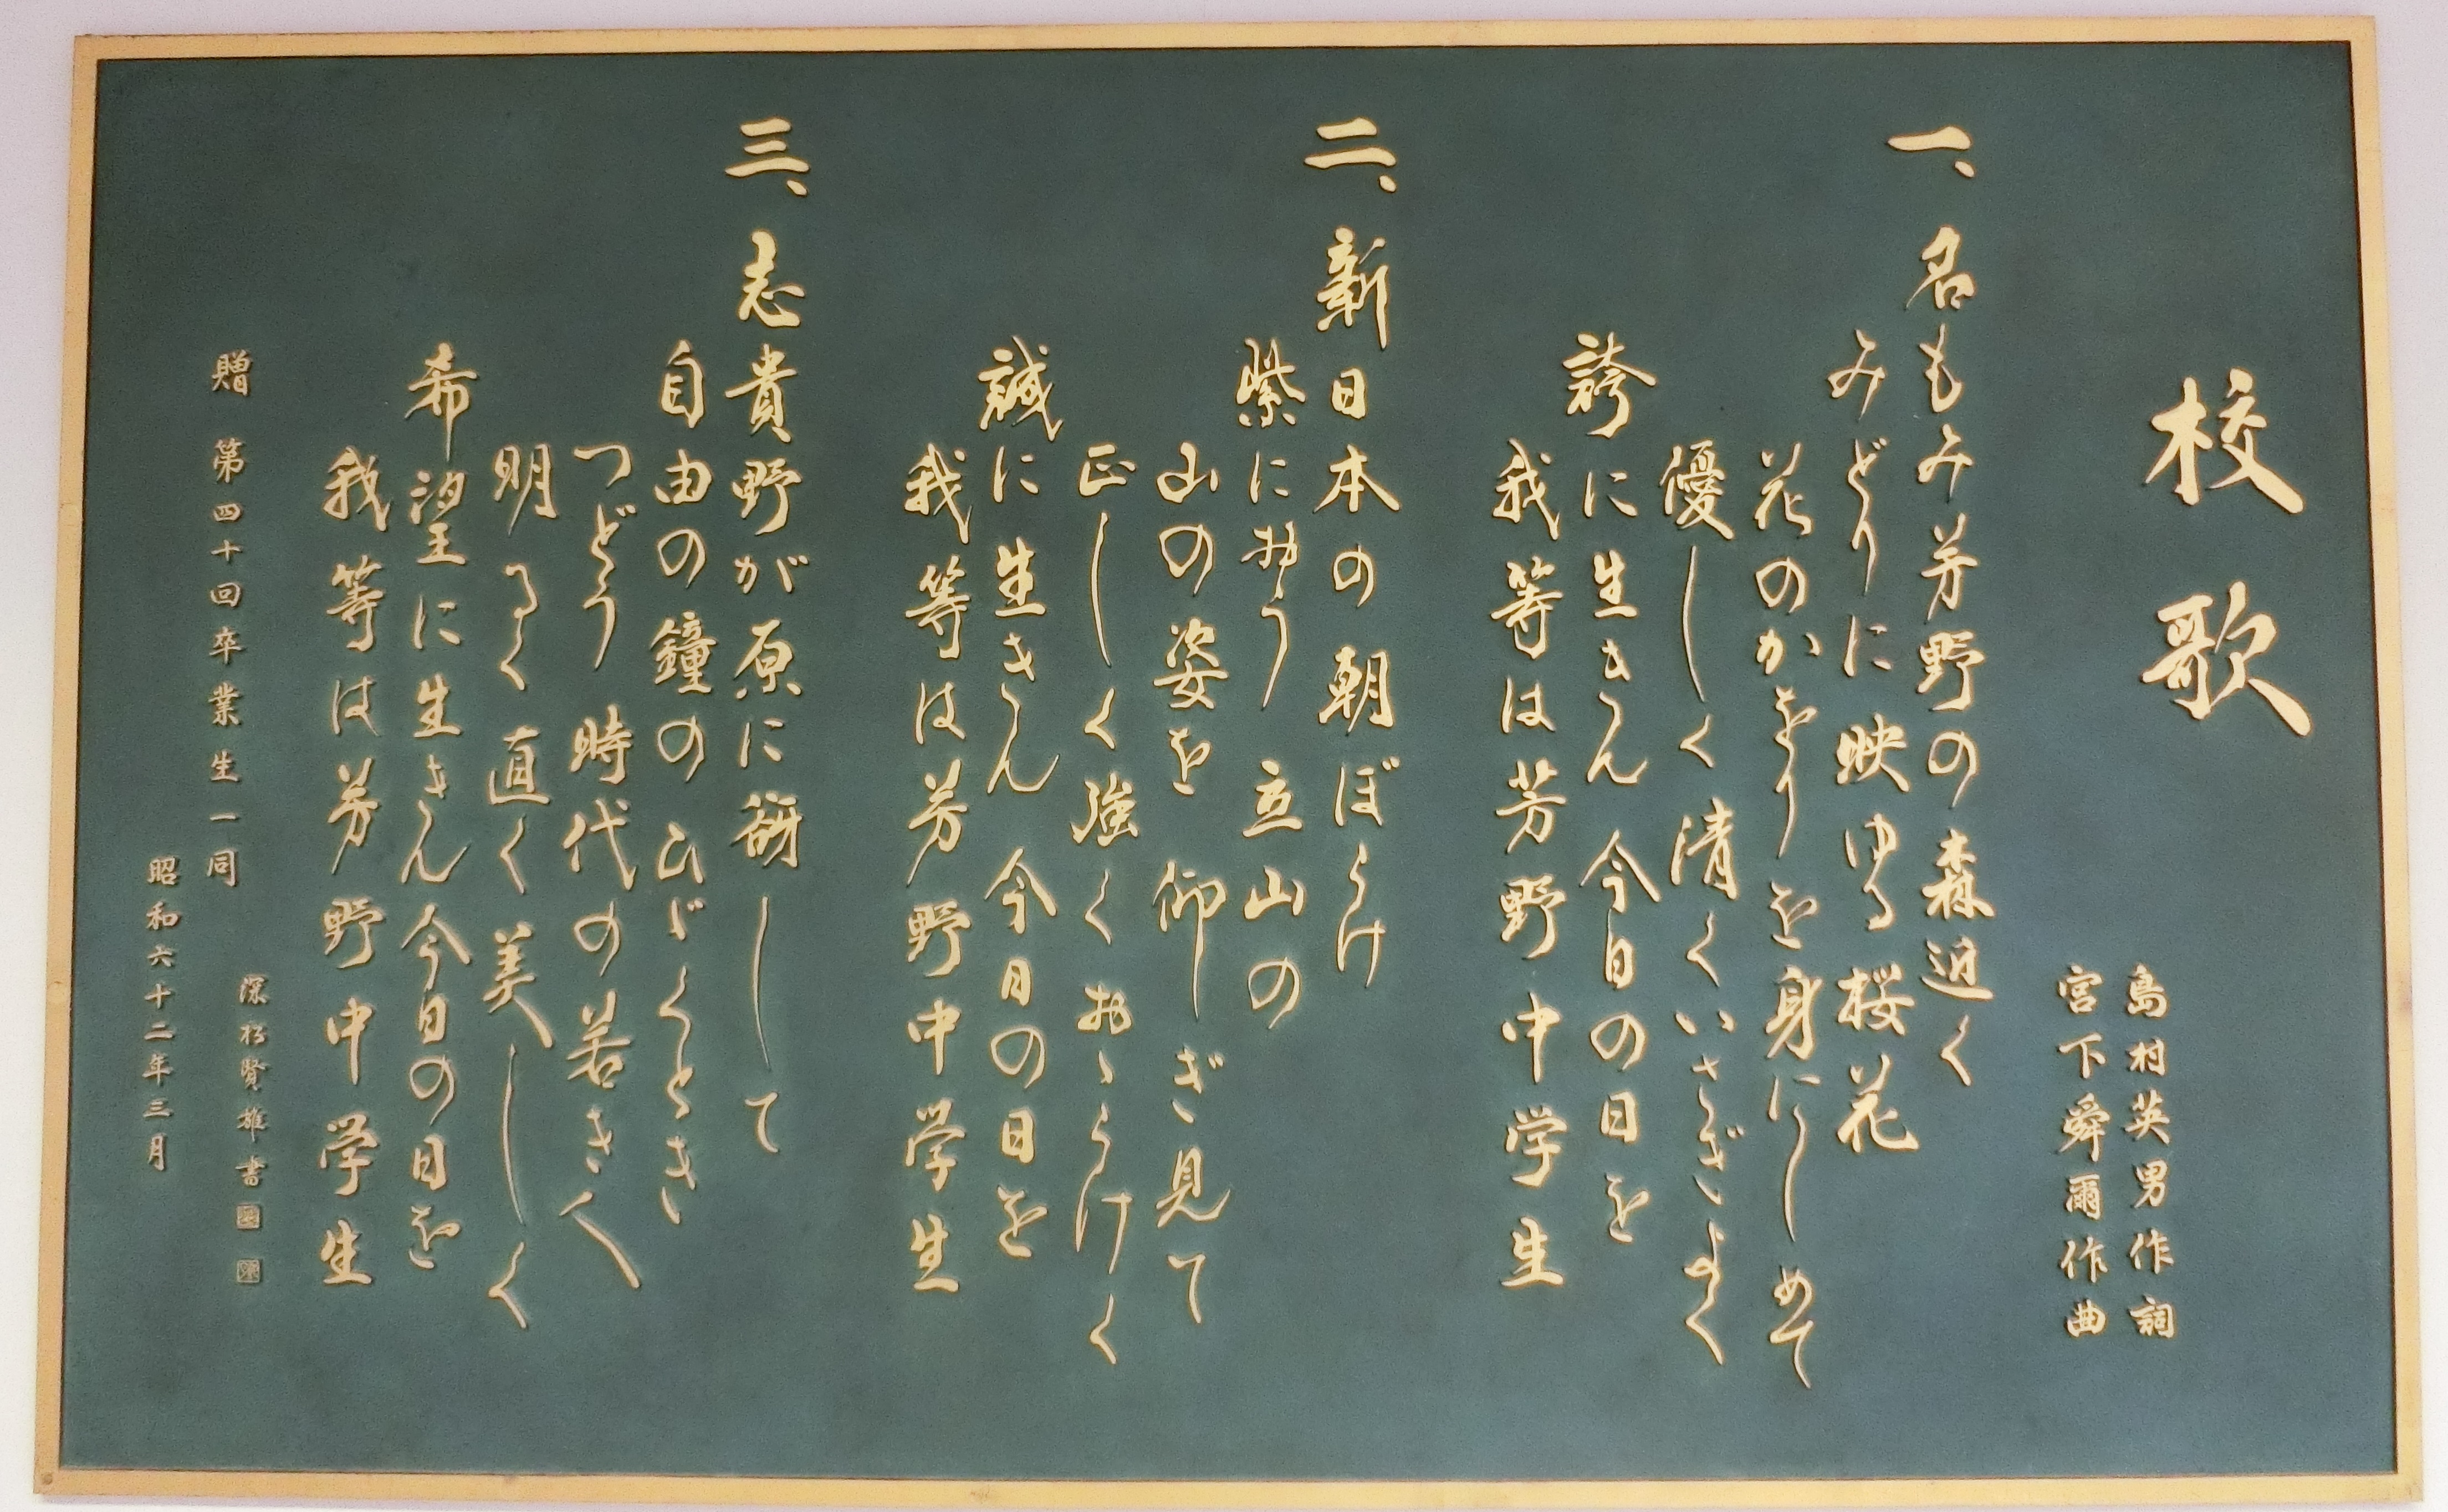 校歌
島村英男作詞
宮下舜爾作曲
一、名もみ芳野の森近く
みどりに映ゆる桜花
花のかをりを身にしめて
優しく清くいさぎよく
誇に生きん今日の日を
我等は芳野中学生
二、新日本の朝ぼらけ
紫におう立山の
山の姿を仰ぎ見て
正しく強くおゝらけく
誠に生きん今日の日を
我等は芳野中学生
三、志貴野が原に研して
自由の鐘のひびくとき
つどう時代の若き人
明るく直く美しく
希望に生きん今日の日を
我等は芳野中学生
深松賢雄書
贈 第四十回卒業生一同
昭和六十二年三月